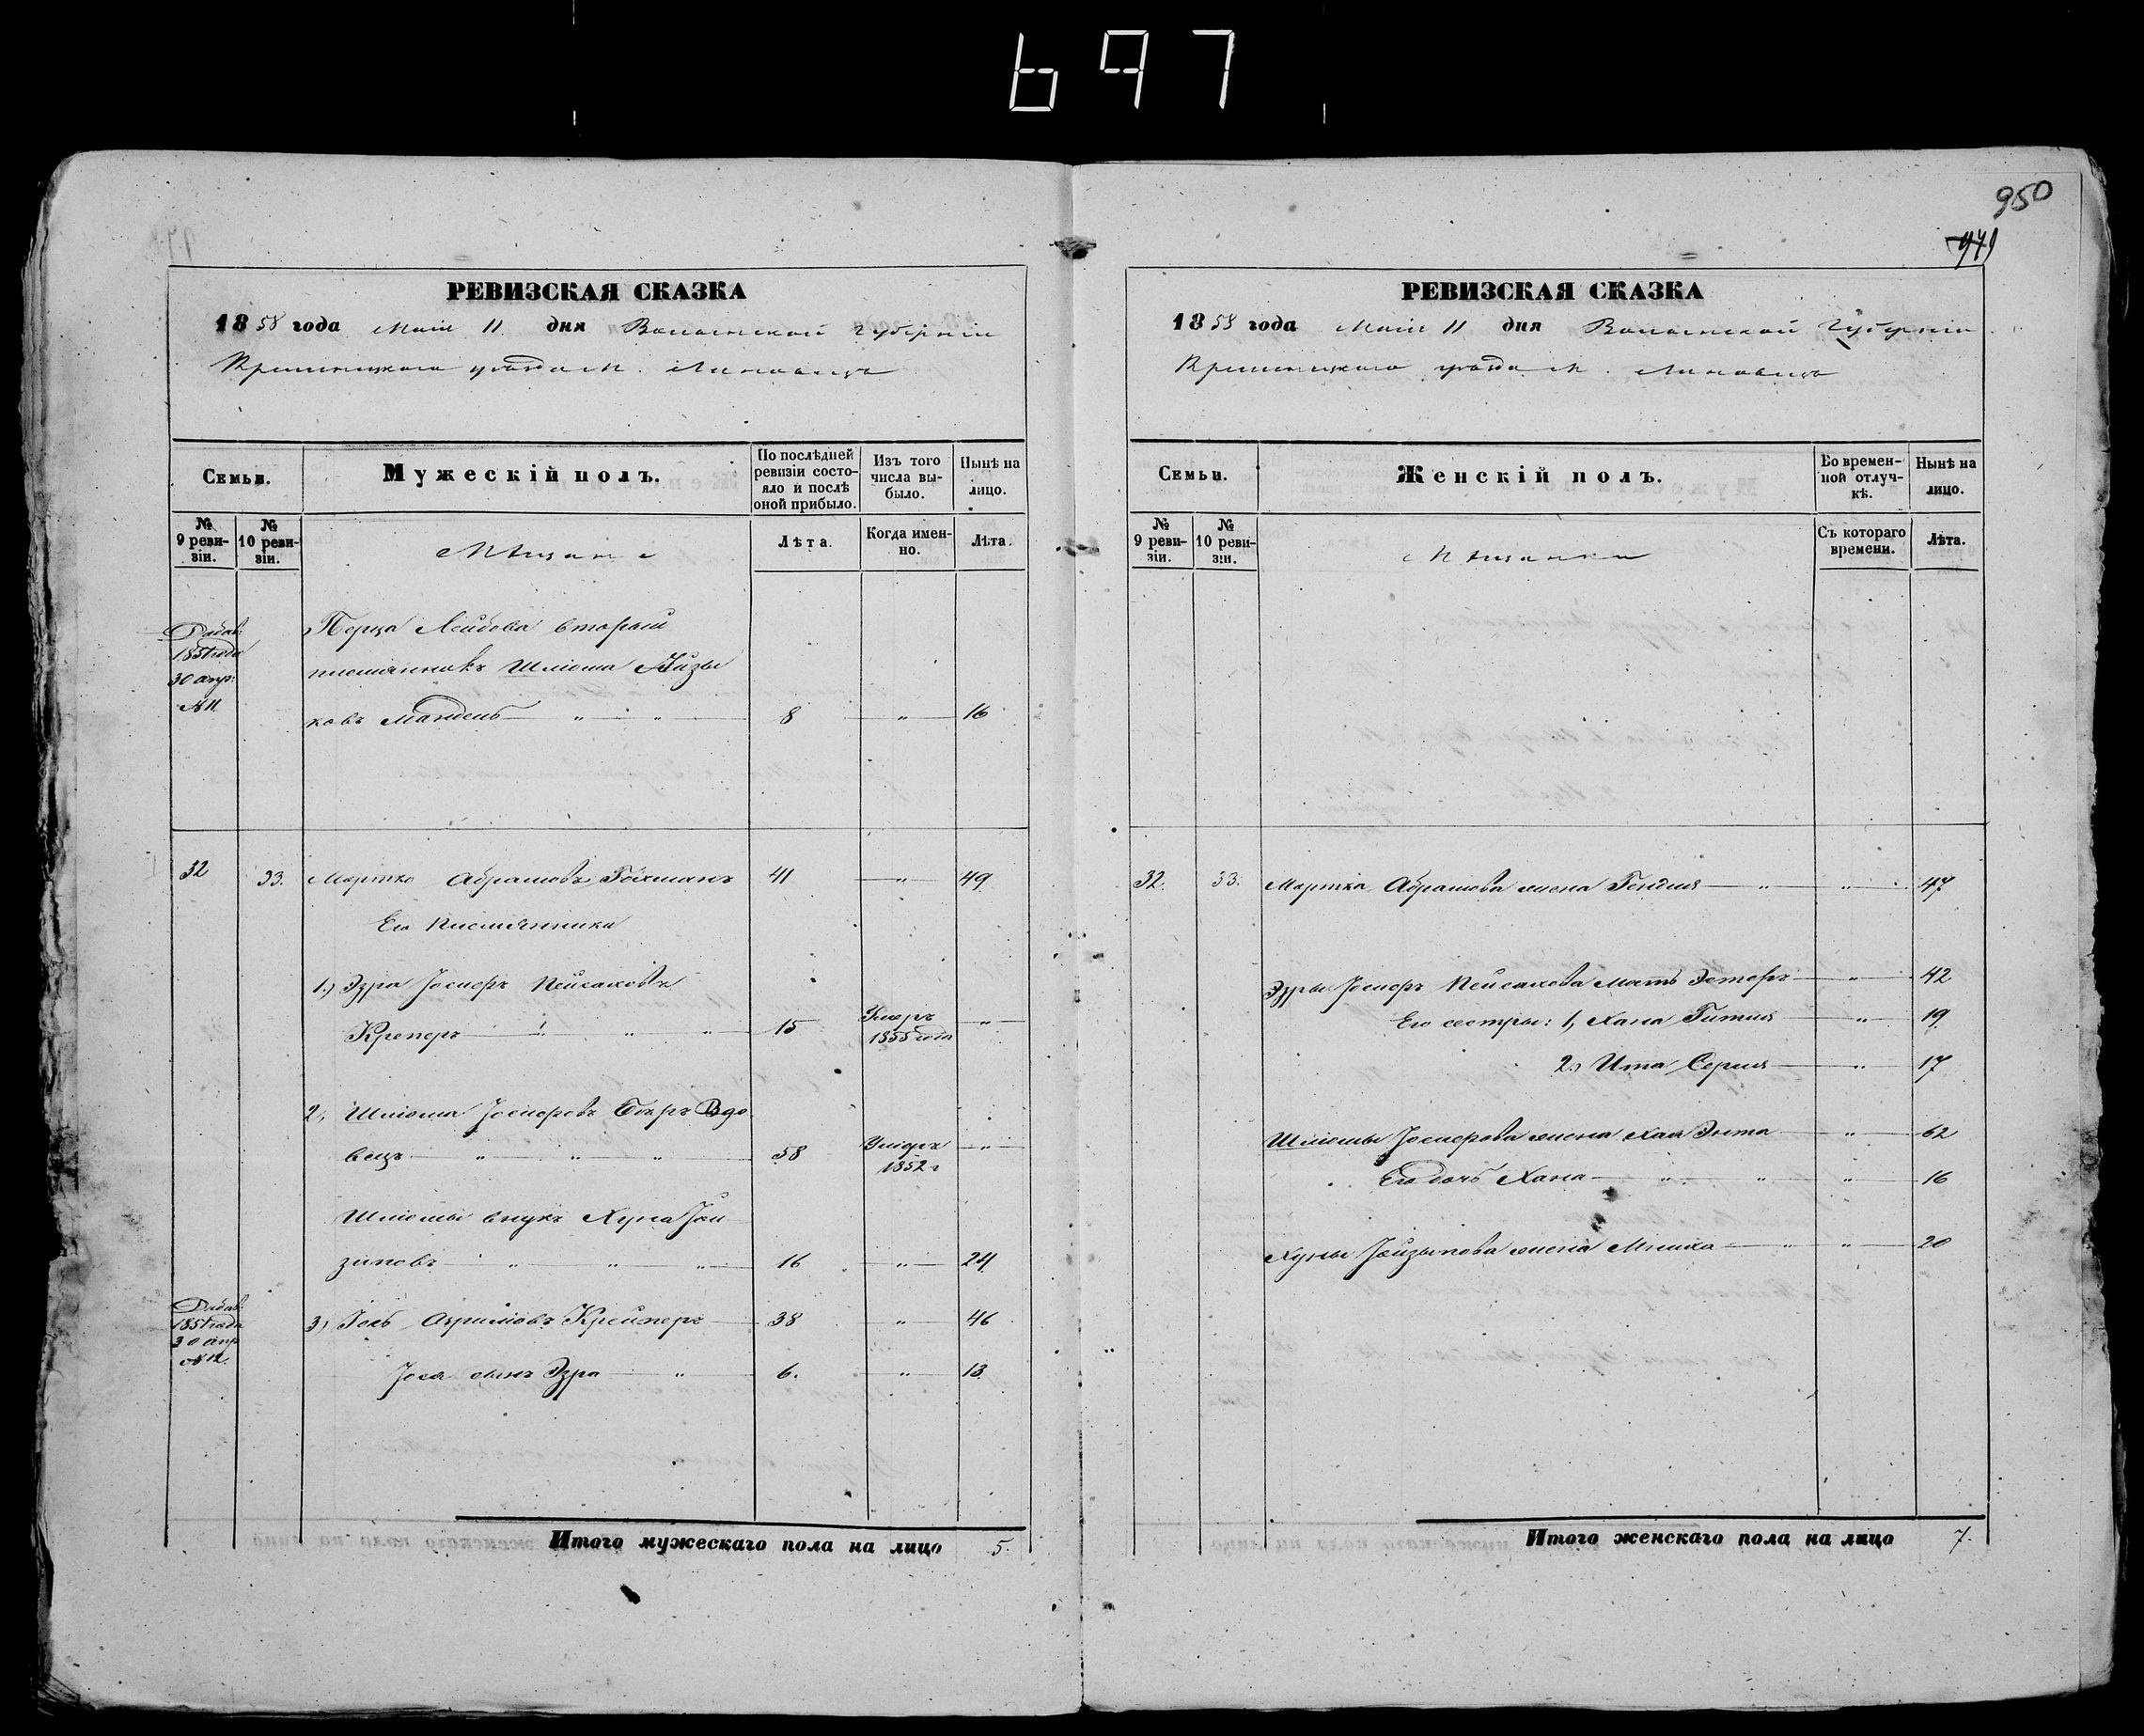 697
950
971
РЕВИЗСКАЯ СКАЗКА
1858 года Маія 11 дня Волынской Губерніи
Кременецкаго уѣзда М.
Семьи.
Мужескій полъ.
По послѣдней ревизіи состояло и послѣ оной прибыло.
Изъ того числа выбыло.
Нынѣ на лицо.
№ 9 ревизіи.
№ 10 ревизіи.
Мѣщане
Лѣта.
Когда именно.
Лѣта.
Добав. 1851 года 30 апр. №11
Перца Лейбова вторый
племянникъ Шлiома Айзы
ковъ Мандель 8 " 16
32 33. Мортко Абрамовъ Гохманъ 41 " 49
Его племянники
1.) Эзра Іосифъ Пейсаховъ
Креперъ 15 Умеръ 1855 года "
2, Шліома Іосифовъ Вдо
вецъ 58 Умеръ 1852 г "
Шліомы внукъ Хуна
зиковъ 16 " 24
Добав. 1851 года 30 апр №12.
3) Іось Крейперъ 38 " 46
Іося сынъ Эзра 6. " 13
Итого мужескаго пола на лицо 5.
РЕВИЗСКАЯ СКАЗКА
1858 года Маія 11 дня Волынской Губерніи
Кременецкаго уѣзда М.
Семьи.
Женскій полъ.
Во временной отлучкѣ.
Нынѣ на лицо.
№ 9 ревизіи.
№ 10 ревизіи.
Мѣщанки
Съ котораго времени.
Лѣта.
32. 33. Мортка Абрамова жена Гендля " 47
Эзры Іосифъ Пейсахова мать Эстеръ " 42
Его сестры: 1, Хана Гитля " 19
2.) Ита Серля " 17
Шліомы Іосифова жена Хая Энта " 62
Его дочь Хана " 16
Хуны жена " 20
Итого женскаго пола на лицо 7.